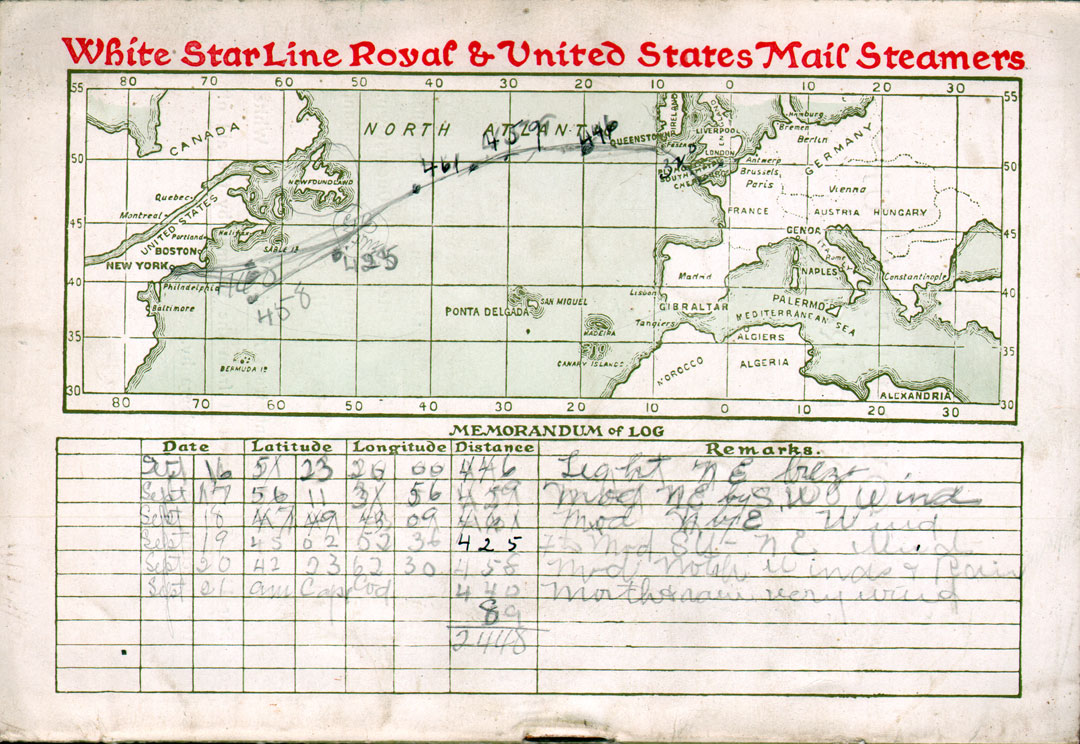 White Star Line Royal & United States Mail Steamers.
80 70 60 50 40 30 20 10 0 10 20 30
55 55
CANADA
NORTH ATLANT
459 446
461
QUEENSTOWN
IRELAND
LIVERPOOL
LONDON
SOUTHAMPTON
CHERBOURG
Hamburg
Bremen
Berlin
GERMANY
50 50
NEWFOUNDLAND
Antwerp
Brussels,
Paris
Vienna
Quebec
Montreal
UNITED STATES
FRANCE
AUSTRIA HUNGARY
45 45
Portland
Halifax
BOSTON
SABLE Is
425
GENOA
ITALY
Rome
NEW YORK
NAPLES
Constantinople
Madrid
40 40
Philadelphia
458
Lisbon
SAN MIGUEL
PONTA DELGADA
GIBRALTAR
PALERMO
MEDITERRANEAN SEA
Baltimore
Tangiers
MADEIRA
ALGIERS
35 35
BERMUDA Is
CANARY ISLANDS
MOROCCO
ALGERIA
ALEXANDRIA
30 30
80 70 60 50 40 30 20 10 0 10 20 30
MEMORANDUM of LOG
Date Latitude Longitude Distance Remarks.
16 51 23 20 00 446 Light N E
Sept 17 11 31 56 459 Mod NE Wind
Sept 18 49 09 Mod Wind
Sept 19 45 02 52 36 425 Mod N.E.
Sept 20 42 23 62 30 458 Mod Winds
Sept 21 am Cape Cod 440 very
89
2448